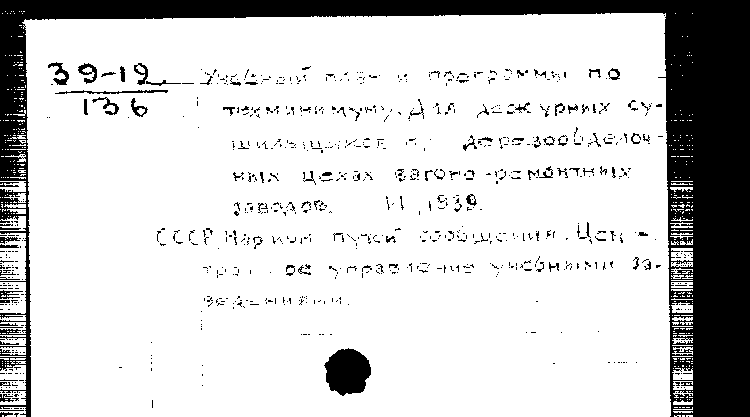 39-19
136
Учебный план и программы по
техминимуму. Для дежурных су-
шильщиков в деревообделоч-
ных цехах вагоно-ремонтных
заводов. М., 1939.
СССР. Нарком путей сообщения. Цен-
трал ое управление учебными за-
ведениями.